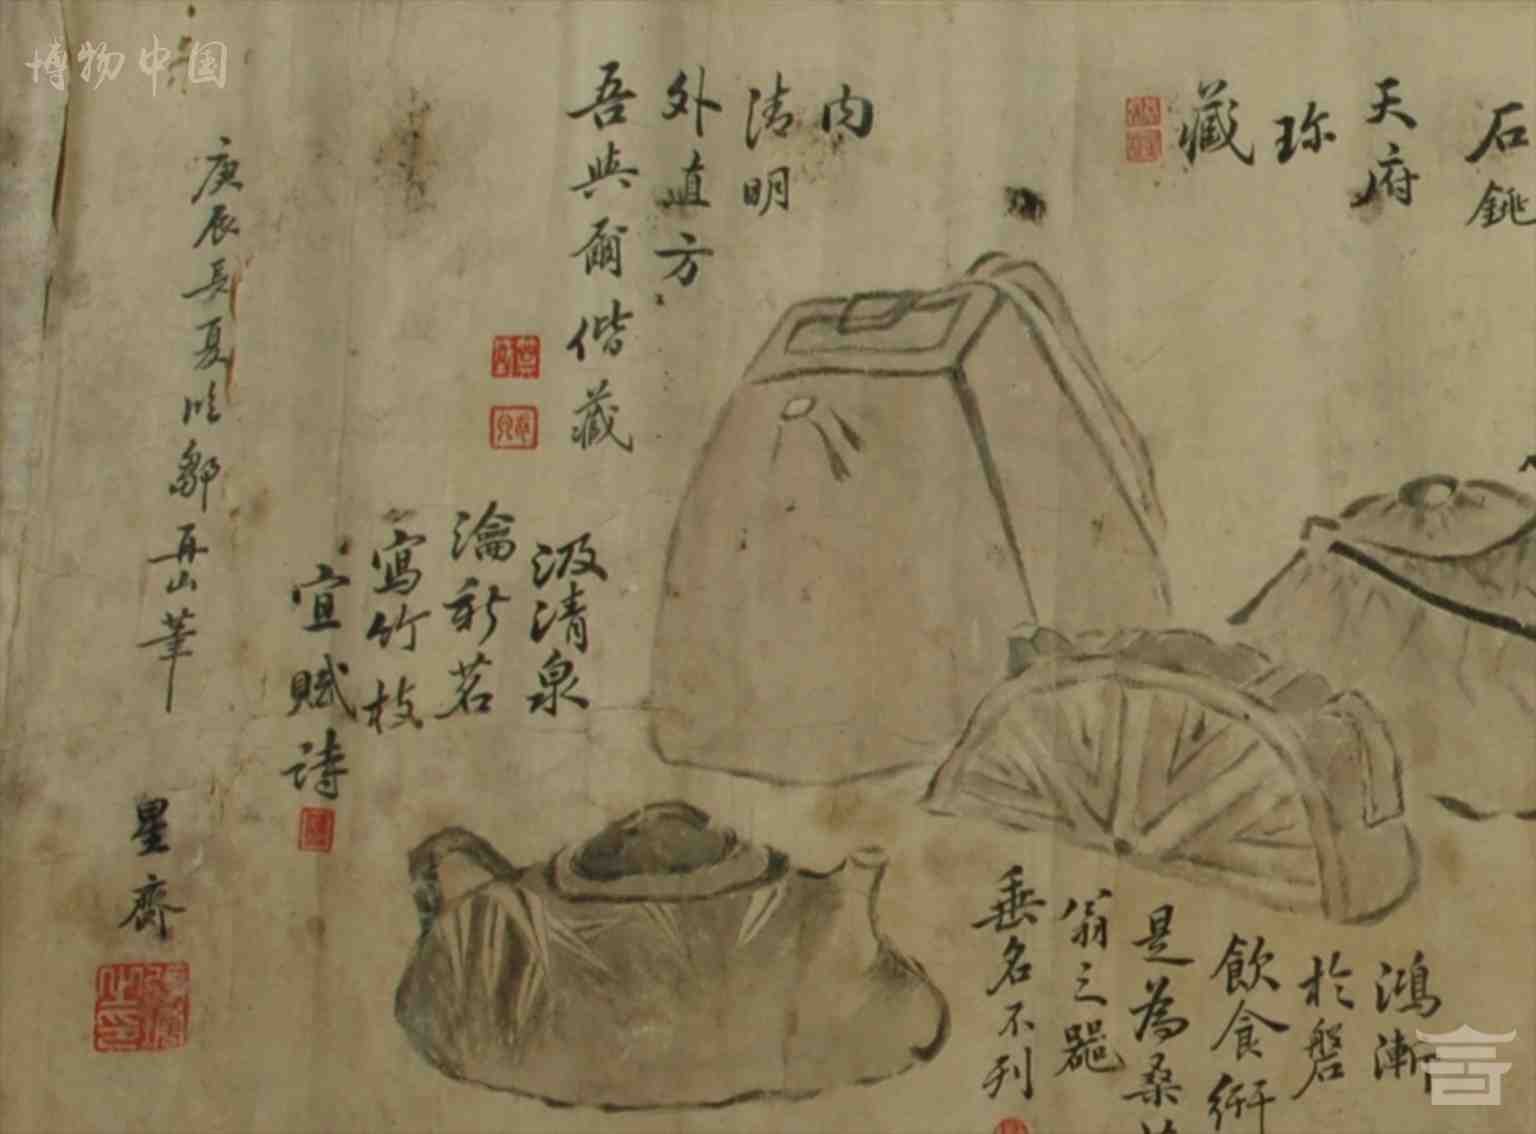 博物中国
石銚
天府
珎
藏
内
清明
外直方
吾與爾偕藏
汲清泉
瀹新茗
寫竹枝
宜賦詩
鴻漸
於磐
飲食衎
是為桑
翁之器
垂名不刊
庚辰長夏作鄒再山筆
星齋